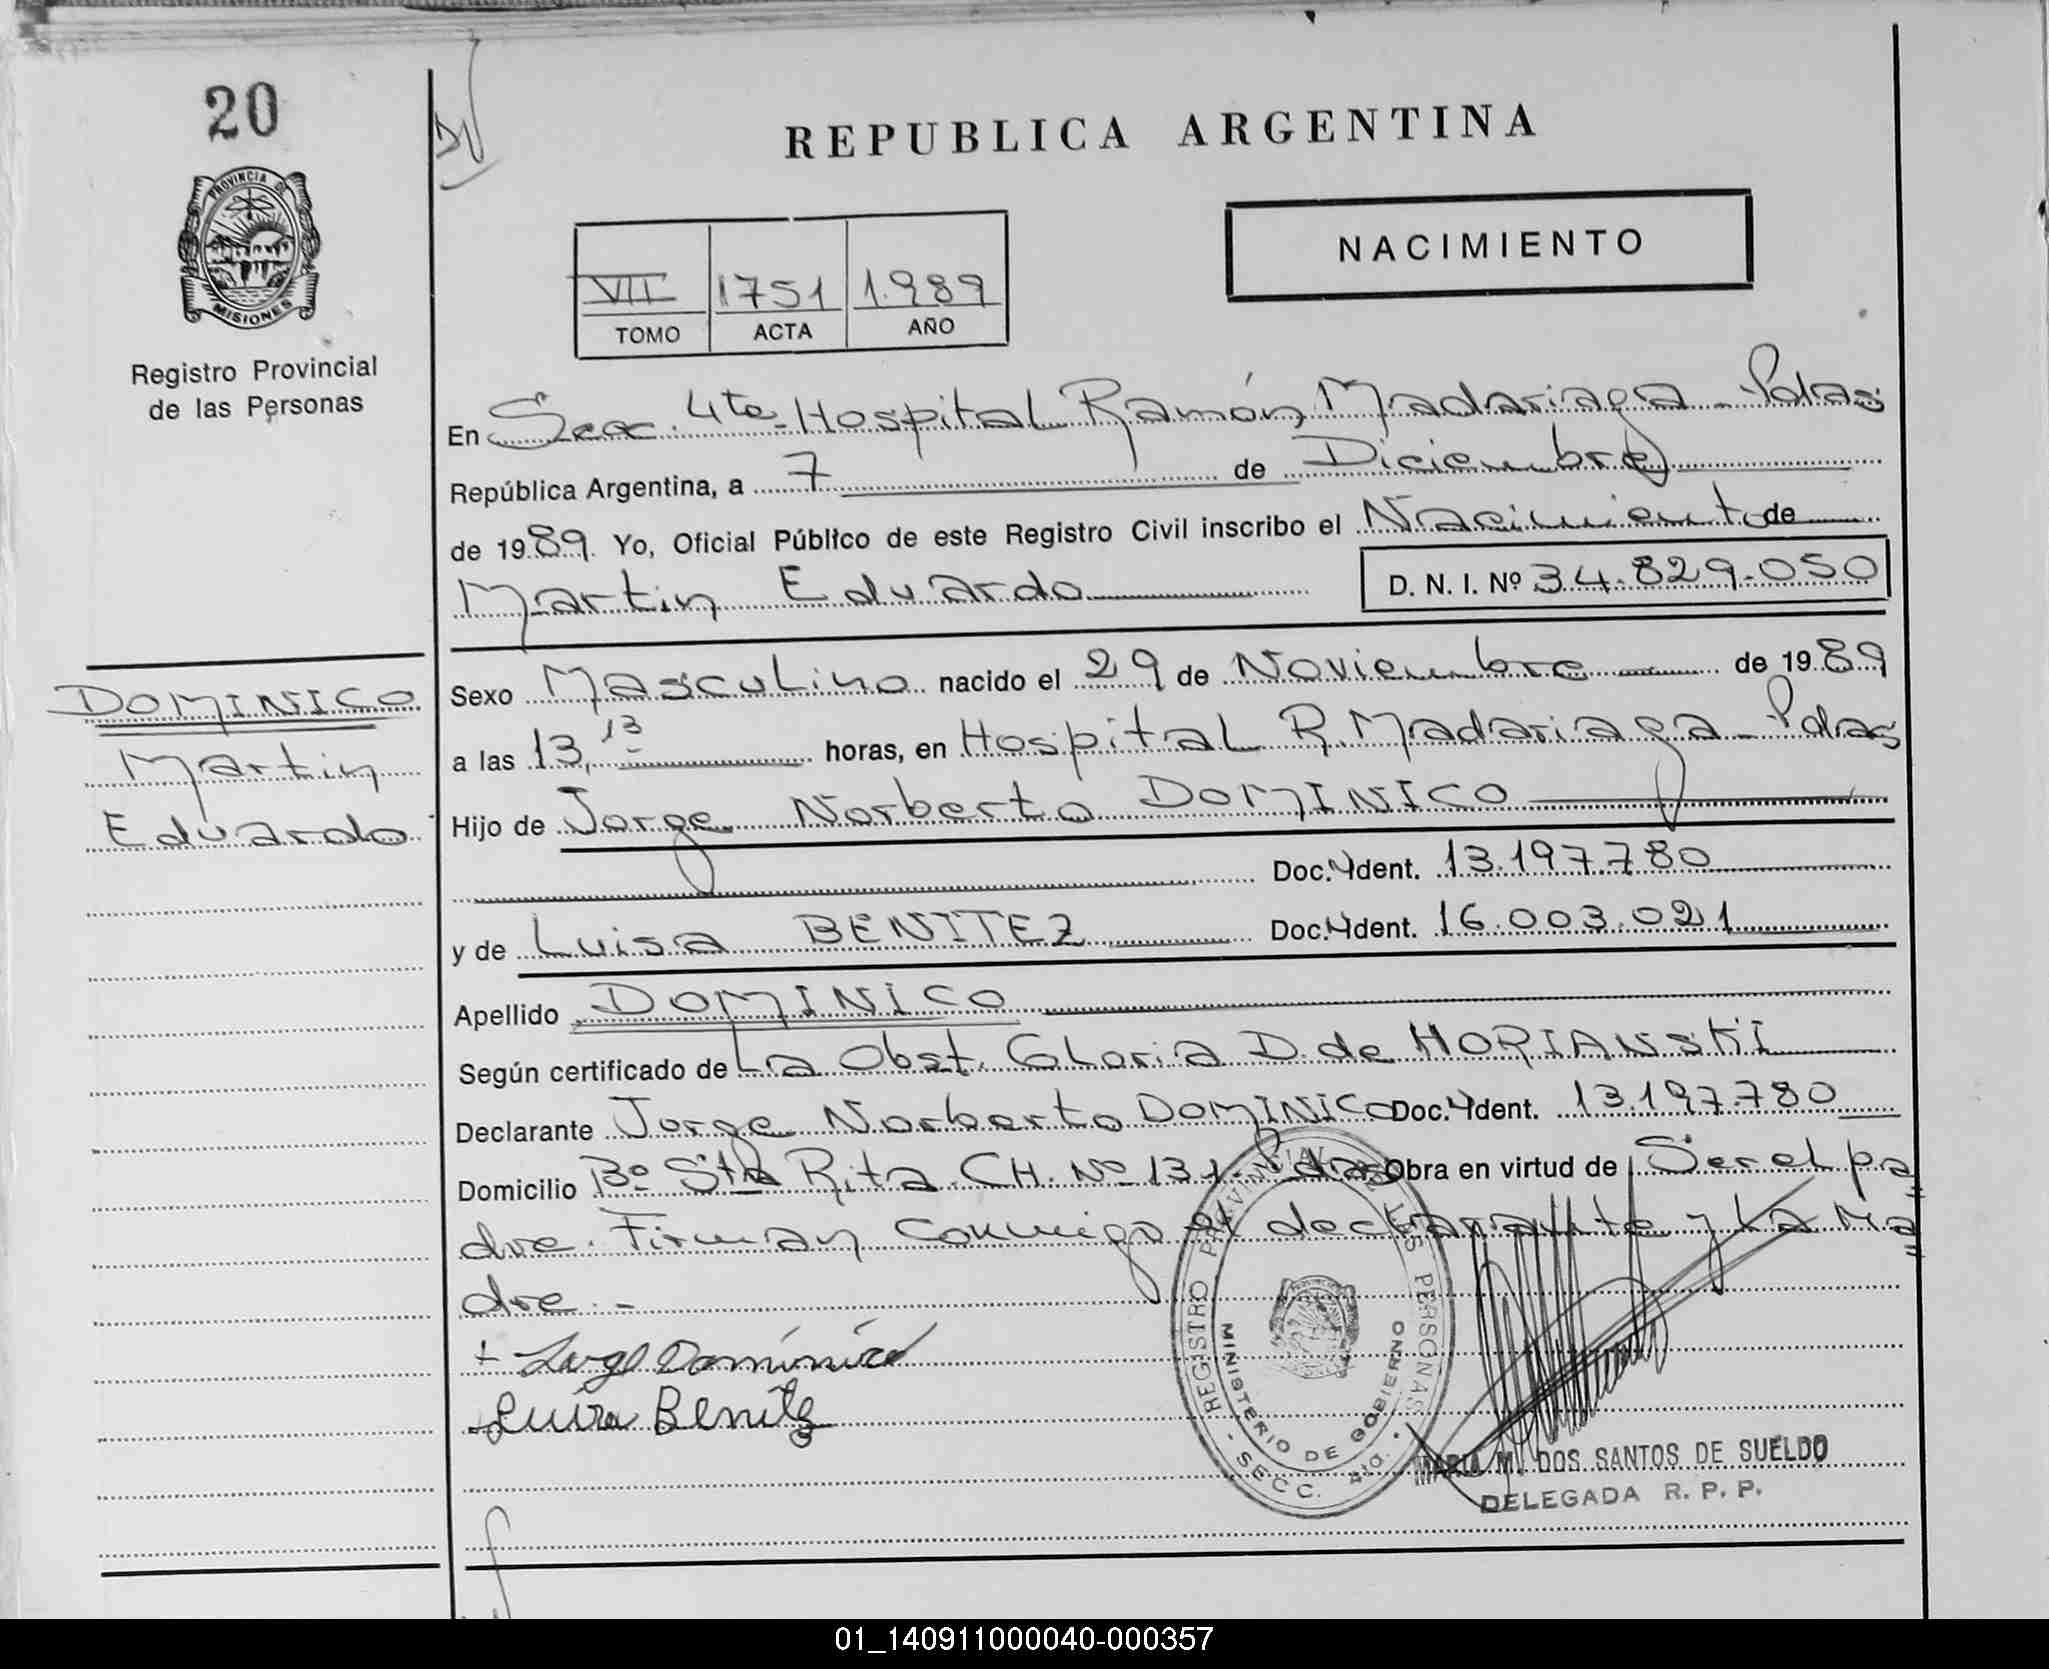 20
PROVINCIA DE
MISIONES
Registro Provincial
de las Personas
REPUBLICA ARGENTINA
NACIMIENTO
VII 1751 1.989
TOMO ACTA AÑO
En Secc. 4ta Hospital Ramón Madariaga - Pdas
República Argentina, a 7 de Diciembre
de 1989. Yo, Oficial Público de este Registro Civil inscribo el Nacimiento de
Martin Eduardo D. N. I. Nº 34.829.050
DOMINICO
Martin
Eduardo
Sexo Masculino nacido el 29 de Noviembre de 1989
a las 13,13 horas, en Hospital R. Madariaga - Pdas
Hijo de Jorge Norberto DOMINICO
Doc. Ident. 13.197.780
y de Luisa BENITEZ Doc. Ident. 16.003.021
Apellido DOMINICO
Según certificado de La Obst. Gloria D. de HORIANSKI
Declarante Jorge Norberto DOMINICO Doc. Ident. 13.197.780
Domicilio Bº Sta Rita. CH. Nº 131 - Pdas Obra en virtud de Ser el pa=
dre. Firman conmigo el declarante y La Ma=
dre.-
+ Jorge Dominico
Luisa Benitez
REGISTRO PROVINCIAL DE LAS PERSONAS
MINISTERIO DE GOBIERNO
- SECC. 4ta. -
MARIA M. DOS SANTOS DE SUELDO
DELEGADA R. P. P.
01_140911000040-000357